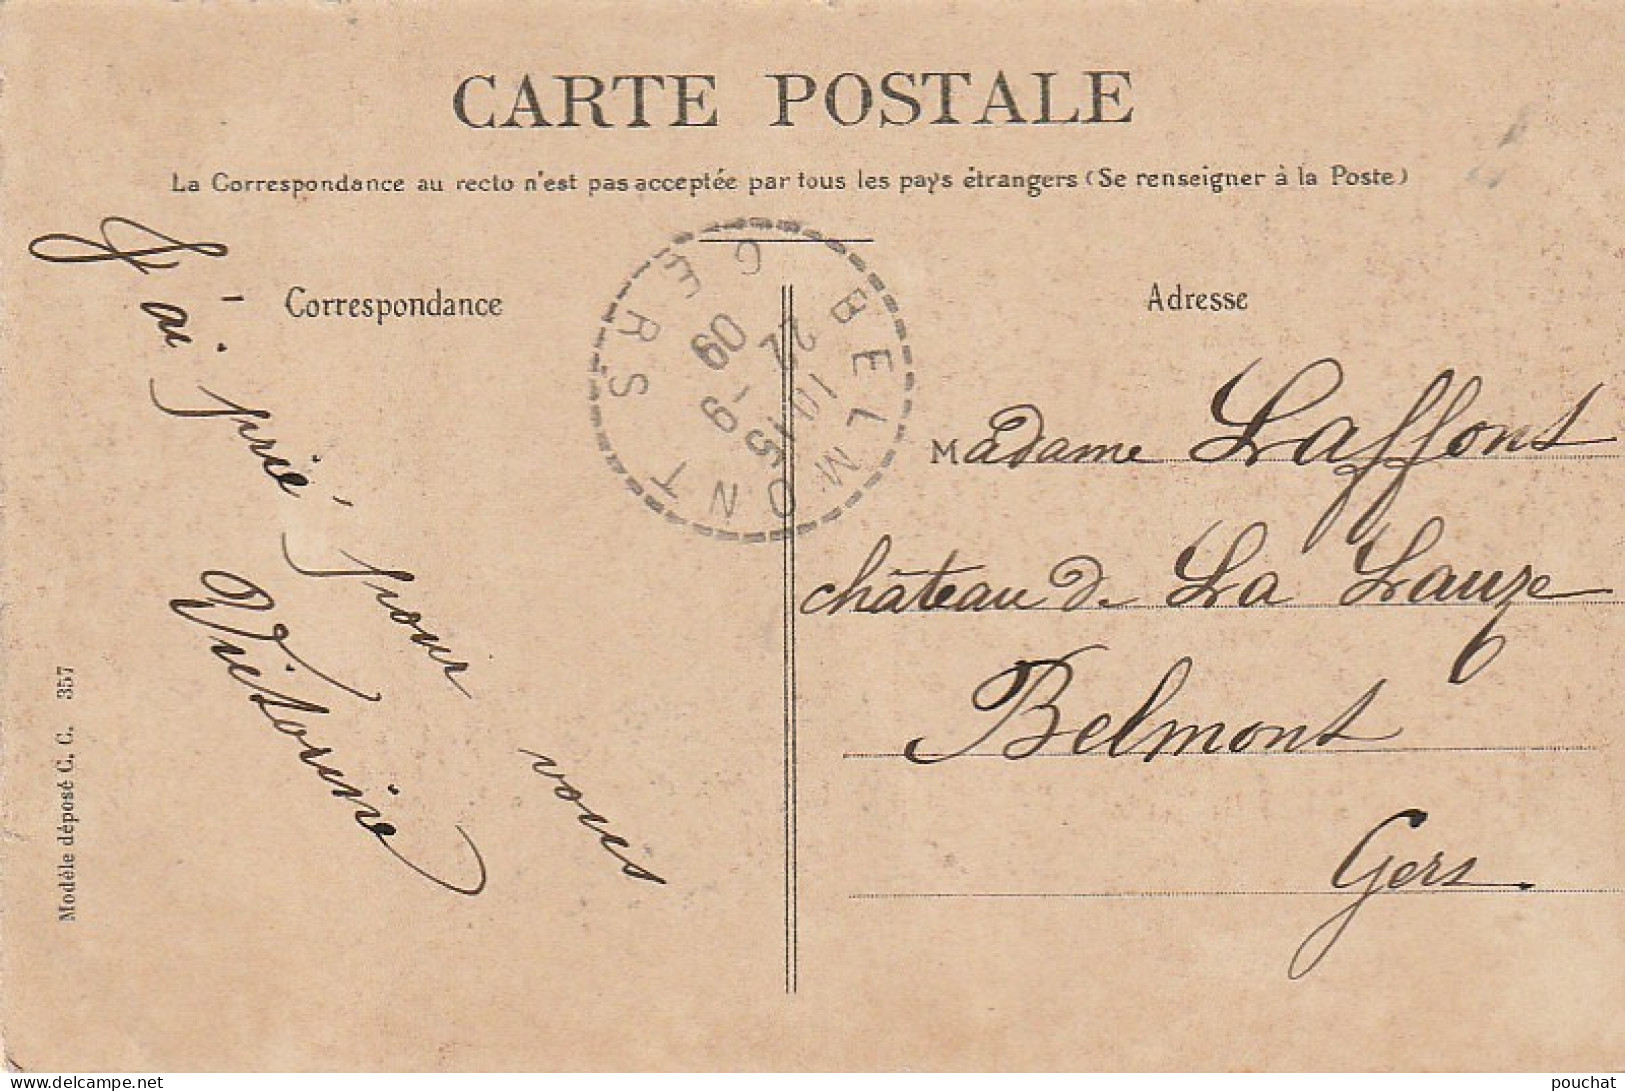 CARTE POSTALE
La Correspondance au recto n'est pas acceptée par tous les pays étrangers (Se renseigner à la Poste)
Correspondance
J'ai prié pour vous
Victorine
Adresse
Madame Laffont
château de La Lauze
Belmont
Gers.
BELMONT
GERS
10 15
22 - 9
09
Modèle déposé C. C. 357
www.delcampe.net
pouchat